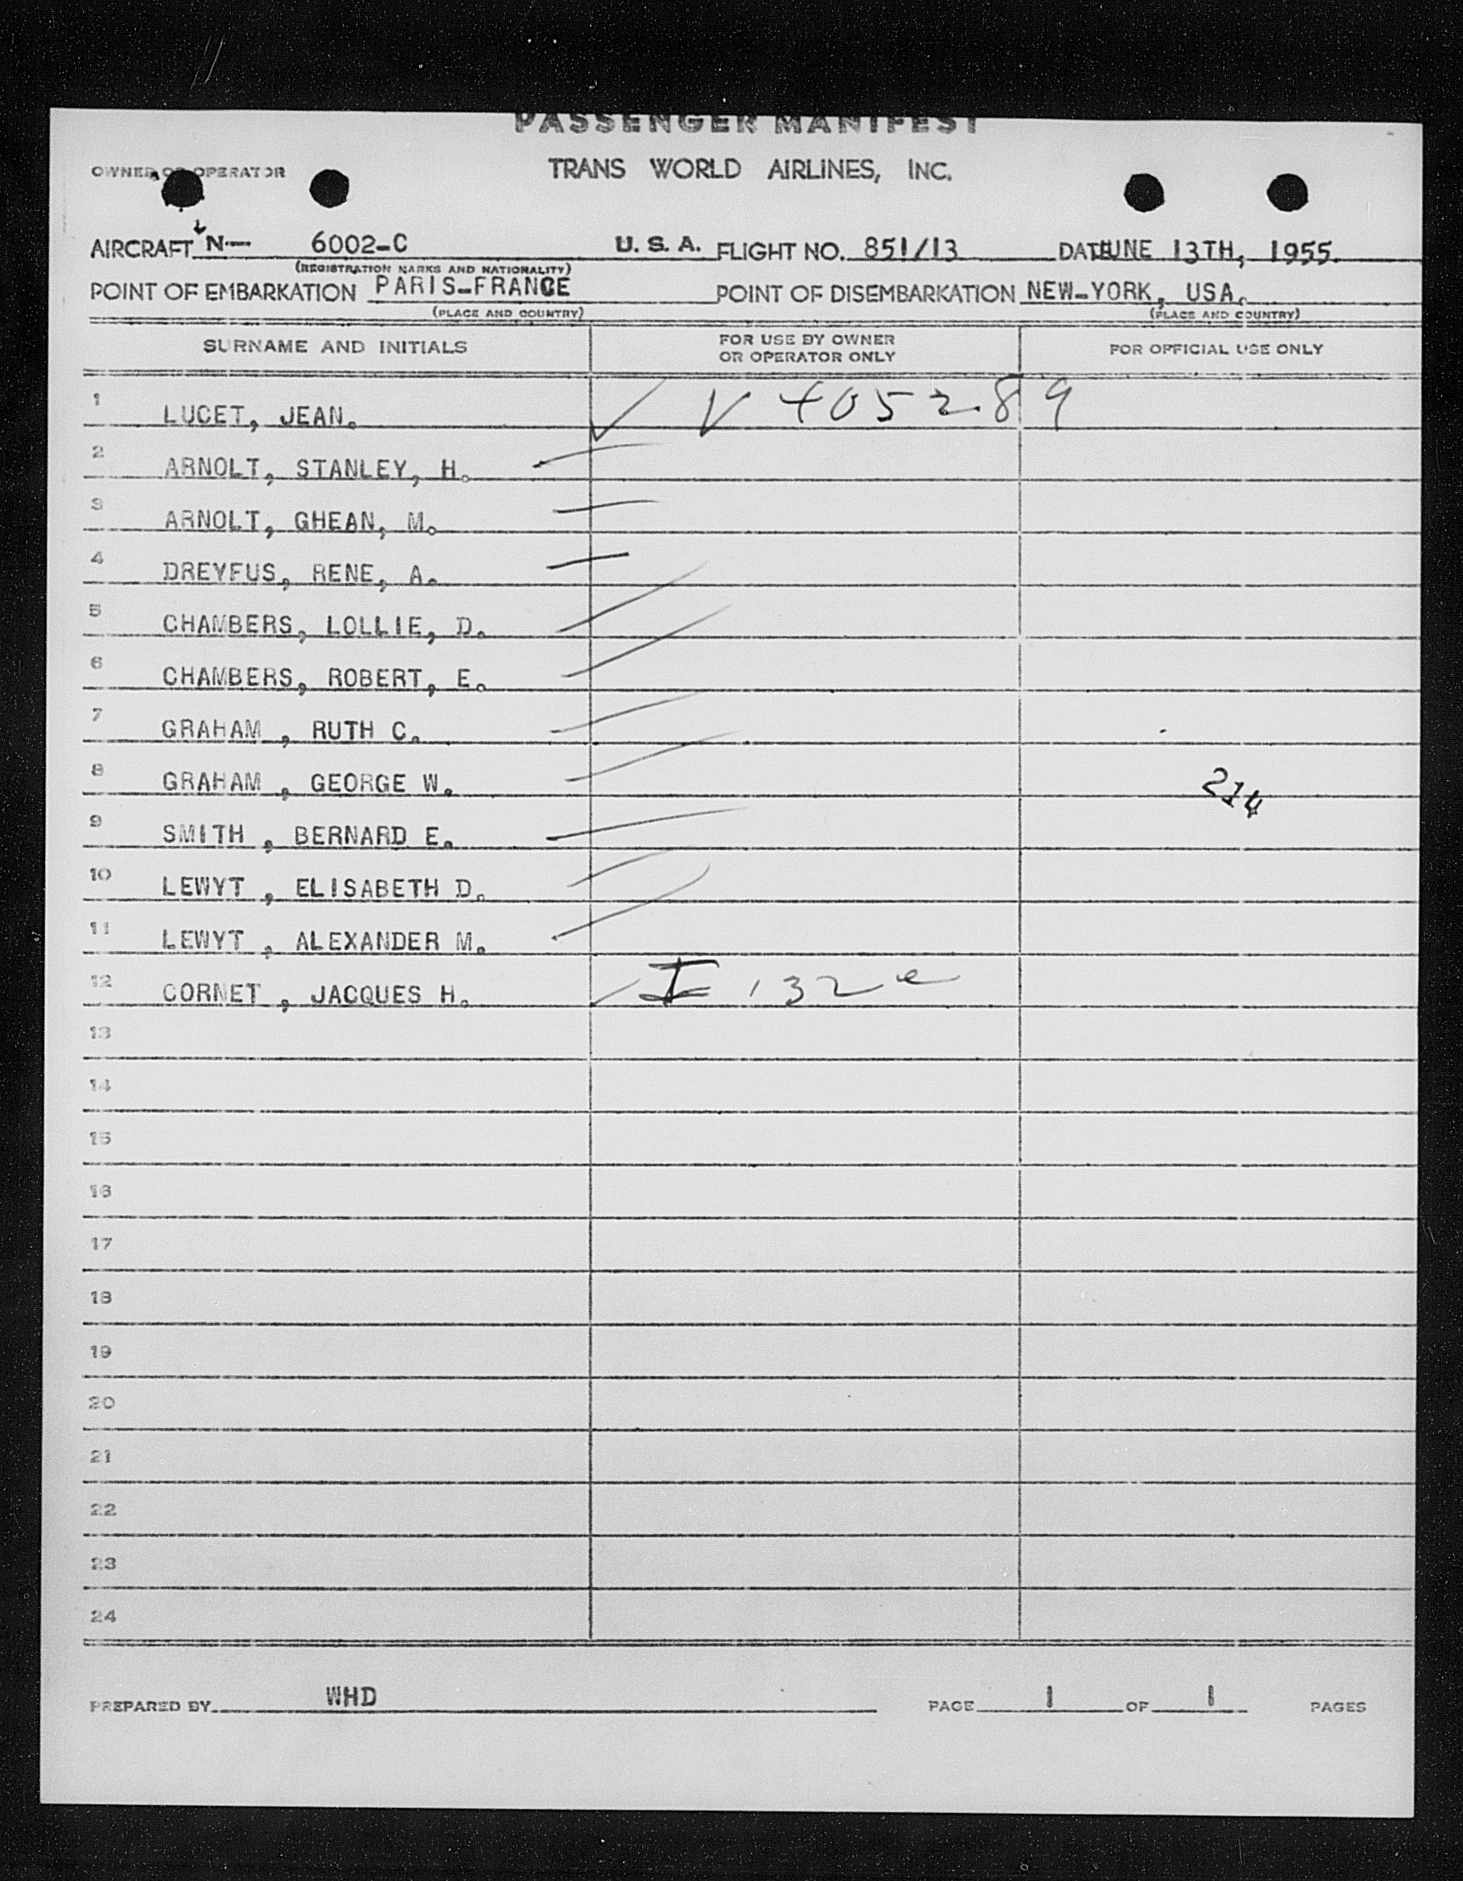 PASSENGER MANIFEST
OWNER OR OPERATOR TRANS WORLD AIRLINES, INC.
AIRCRAFT N— 6002-C U. S. A. FLIGHT NO. 851/13 DATE JUNE 13TH, 1955.
(REGISTRATION MARKS AND NATIONALITY)
POINT OF EMBARKATION PARIS-FRANCE POINT OF DISEMBARKATION NEW-YORK, USA.
(PLACE AND COUNTRY) (PLACE AND COUNTRY)
SURNAME AND INITIALS FOR USE BY OWNER OR OPERATOR ONLY FOR OFFICIAL USE ONLY
1 LUCET, JEAN. V 405289
2 ARNOLT, STANLEY, H.
3 ARNOLT, GHEAN, M.
4 DREYFUS, RENE, A.
5 CHAMBERS, LOLLIE, D.
6 CHAMBERS, ROBERT, E.
7 GRAHAM , RUTH C.
8 GRAHAM , GEORGE W. 214
9 SMITH , BERNARD E.
10 LEWYT , ELISABETH D.
11 LEWYT , ALEXANDER M.
12 CORNET , JACQUES H. I 132
13
14
15
16
17
18
19
20
21
22
23
24
PREPARED BY WHD PAGE 1 OF 1 PAGES